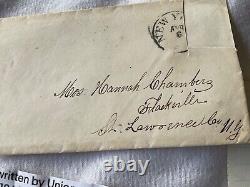 NEW Y
6
Mrs Hannah Chambers
Flackville
St. Lawrence Co N.Y.
written by Union